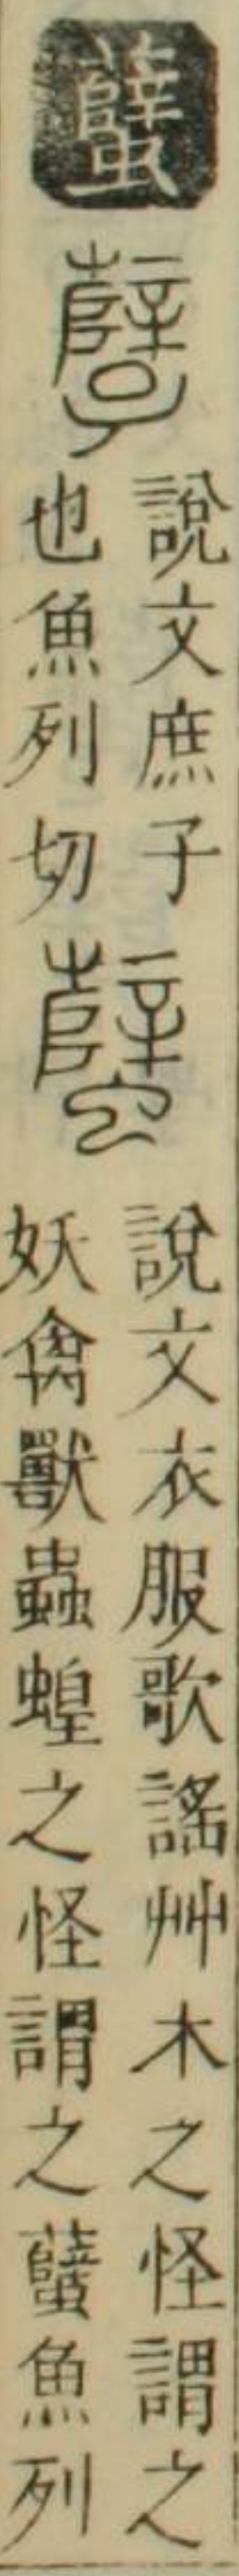 蠥
孼
說文庶子
也魚列切
蠥
說文衣服歌謠艸木之怪謂之
妖禽獸蟲蝗之怪謂之蠥魚列